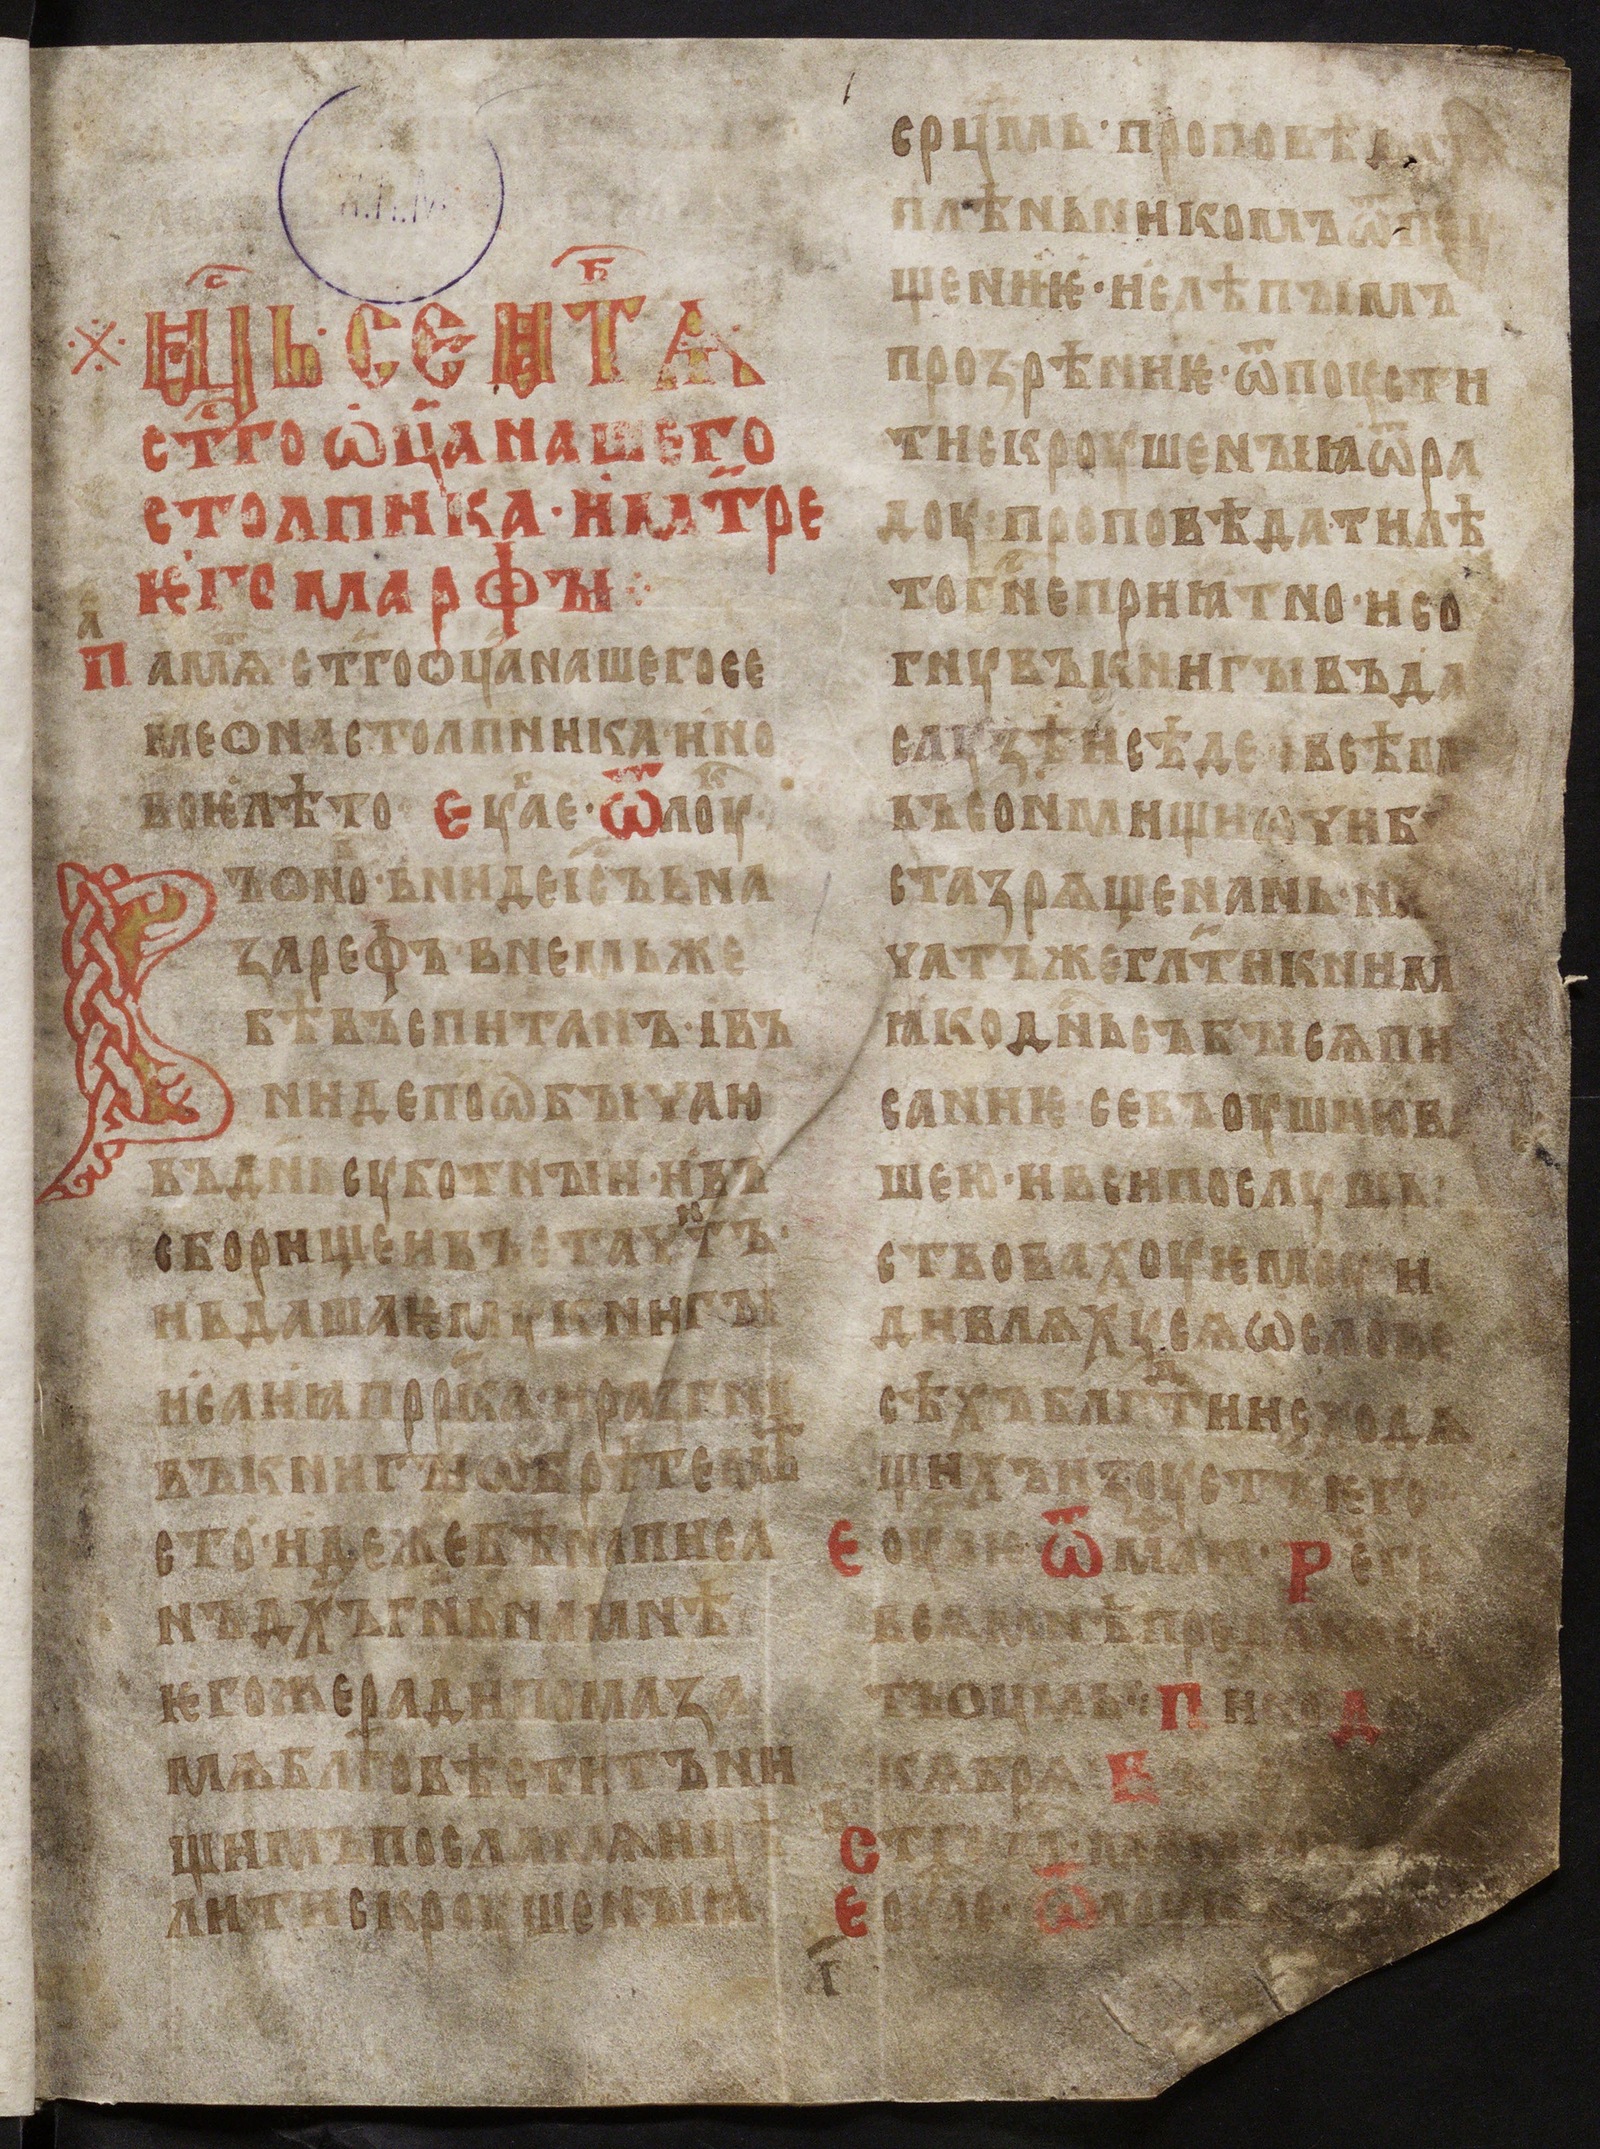 мⷭ҇ць· сеⷫ҇нтѧ
стⷭ҇го ѡц҃а нашего
столпника· и мт҃ре
ѥго марфꙑ
а҃
памѧⷮ стг҃о оц҃а нашегосе
меона столпника· и но
воѥ лѣто· еуⷢ҇ле· ѿ лоуⷦ҇·
Въ оно· вниде іс҃ъ в на
зарефъ· в немьже
бѣ въспитанъ· і въ
ниде по ѡбꙑчаю
въ дн҃ь суботнꙑи· и въ
сборище и въста чтⷩ҇ъ·
и вдаша ѥму книгꙑ
исаиꙗ прⷪ҇рка· и разгну
въ книгꙑ ѡбрѣте мѣ
сто· идеже бѣ написа
нъ дх҃ъ гн҃ь на мнѣ
ѥгоже ради помаза
мѧ блг҃овѣстить ни
щимъ посла мѧ ицѣ
лити скрѹшенꙑꙗ
срц҃мь· проповѣдат
плѣньникомъ ѿпу
щениѥ· и слѣпꙑмъ
прозрѣниѥ· ѿпоусти
ти скроушенꙑꙗ ѿра
доу· проповѣдати лѣ
то гн҃е приꙗтно· и со
гнувъ книгꙑ въда
слузѣ и сѣде· і всѣм
въ сонмищи ѡчи бѣ
ста зрѧще нань· на
чатъже гл҃ти к ним
ꙗко дн҃ьсь събꙑсѧ пи
саниѥ· се въ оушию ва
шею· и вси послуша
ствовахоу ѥмоу и
дивлѧхусѧ ѡ слове
сѣхъ блгⷣти исходѧ
щихъ из оустъ ѥго
Еоуⷢ҇·ѿ маⷴ҇· Рече гь
всѧ мнѣ предана соу
ть оц҃мь·
Стг҃о
Е ѿ
г҃